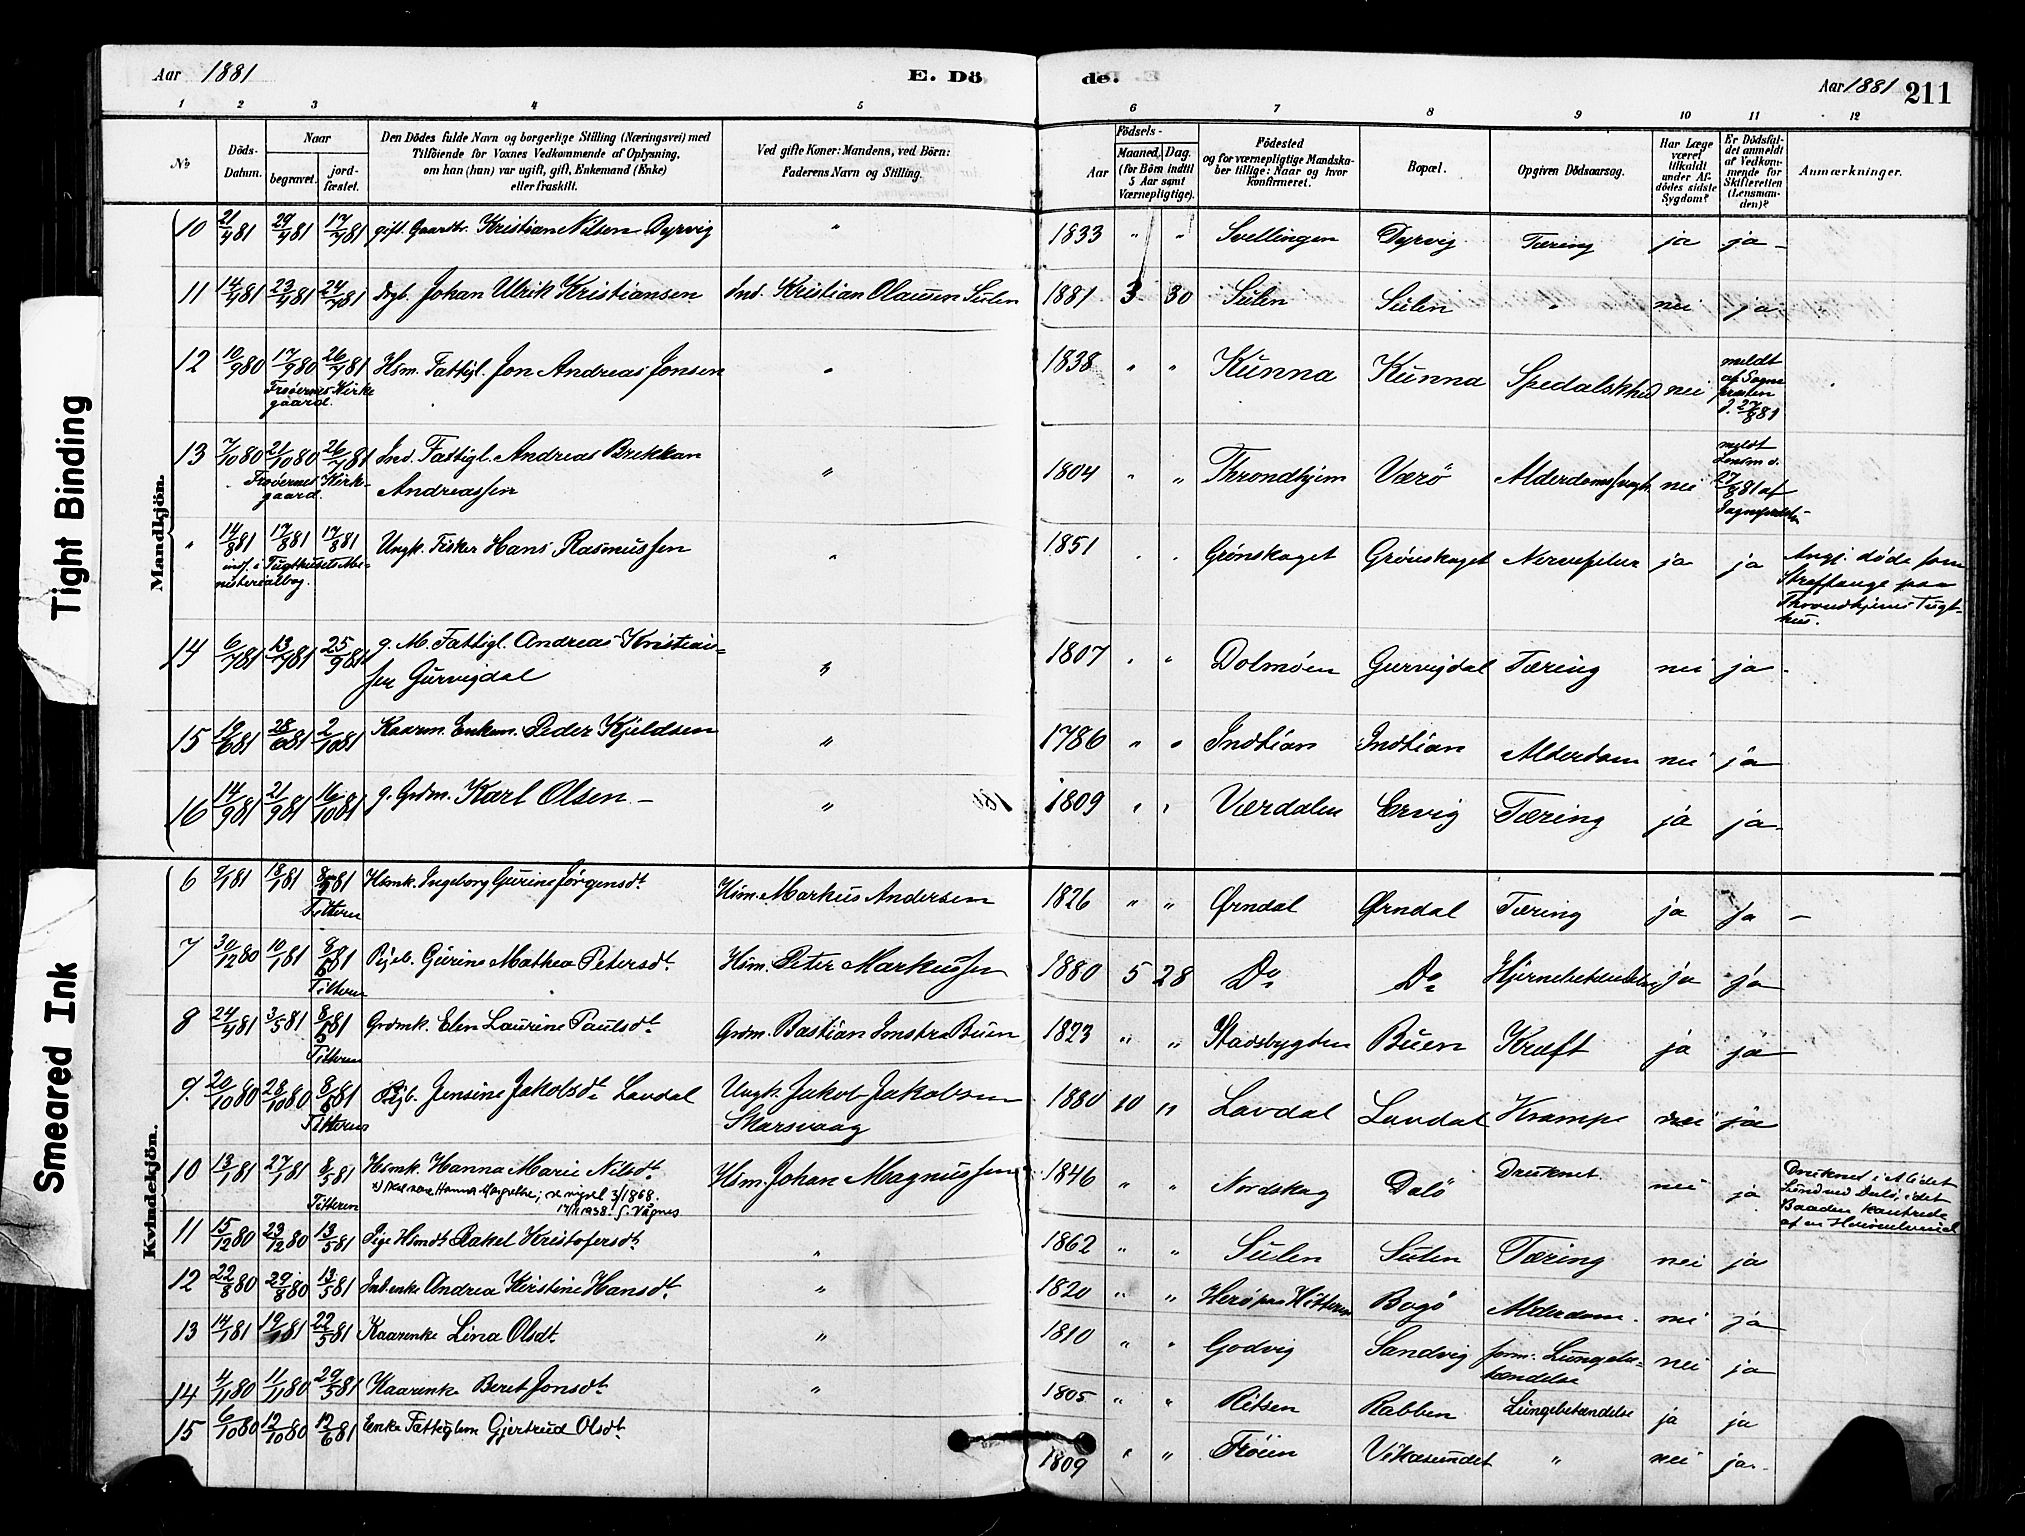 Aar 1881
E. Dö
de.
Aar 1881 211
1 2 3 4 5 6 7 8 9 10 11 12
No
Döds-
Datum.
Naar
begravet.
jord-
fæstet.
Den Dödes fulde Navn og borgerlige Stilling (Næringsvei) med
Tilföiende for Voxnes Vedkommende af Oplysning,
om han (hun) var ugift, gift, Enkemand (Enke)
eller fraskilt.
Ved gifte Koner: Mandens, ved Börn:
Faderens Navn og Stilling.
Födsels-
Aar
Maaned, Dag.
(for Börn indtil
5 Aar samt
Værnepligtige).
Födested
og for værnepligtige Mandska-
ber tillige: Naar og hvor
konfirmeret.
Bopæl.
Opgiven Dödsaarsag.
Har Læge
været
tilkaldt
under Af-
dödes sidste
Sygdom?
Er Dödsfal-
det anmeldt
af Vedkom-
mende for
Skifteretten
(Lensman-
den)?
Anmærkninger.
Mandkjön.
10 21/4 81 29/4 81 17/7 81 gift. Gaardbr. Kristian Nilsen Dyrvig " 1833 " " Svellingen Dyrvig Tæring ja ja -
11 14/4 81 23/4 81 24/7 81 Drgb. Johan Ulrik Kristiansen Ind. Kristian Olausen Sulen 1881 3 30 Sulen Sulen " nei ja
12 10/9 80 17/9 80 26/7 81 Hsm. Fattigl. Jon Andreas Jonsen " 1838 " " Kunna Kunna Spedalskhed nei meldt
af Sogne
præsten
d. 27/8 81
Froöernes Kirke
gaard.
13 7/10 80 21/10 80 26/7 81 Ind. Fattigl. Andreas Brekkan
Andreassen " 1804 " " Throndhjem Værö Alderdomssvagh. nei meldt
Lensm d.
27/8 81 af
Sognepræsten
Froöernes Kirke-
gaard
" 14/8 81 17/8 81 17/8 81 Ungk. Fisker Hans Rasmussen " 1851 " " Grönskaget Grönskaget Nervefeber ja ja Angj. döde som
Straffange paa
Throndhjems Tugt-
hus.
indf. i Tugthusets Mi-
nisterialbog.
14 6/7 81 13/7 81 25/9 81 g. M. Fattigl. Andreas Kristian-
sen Gurvigdal " 1807 " " Dolmöen Gurvigdal Tæring nei ja -
15 19/6 81 28/6 81 2/10 81 Kaarm. Enkem. Peder Kjeldsen " 1786 " " Indtian Indtian Alderdom nei ja
16 14/9 81 21/9 81 16/10 81 g. Grdm. Karl Olsen - " 1809 " " Værdalen Ervig Tæring ja ja -
Kvindekjön.
6 9/1 81 18/1 81 8/5 81 Hsmk. Ingeborg Gurine Jörgensdt. Hsm. Markus Andersen 1826 " " Örndal Örndal Tæring ja ja -
Titteren
7 30/12 80 10/1 81 8/5 81 Pigeb. Gurine Mathea Petersdt. Hsm. Peter Markussen 1880 5 28 Do Do Hjernebetændelse ja ja
Titteren
8 24/4 81 3/5 81 8/5 81 Grdmk. Elen Laurine Paulsdt. Grdm. Bastian Jonstra Buen 1823 " " Stadsbygden Buen Kræft ja ja
Titteren
9. 20/10 80 28/10 80 8/5 81 Pigb. Jensine Jakobsdt. Lavdal Ungk. Jakob Jakobsen
Skarsvaag 1880 10 " Lavdal Lavdal Krampe nei ja
Titteren
10 13/1 81 27/1 81 8/5 81 Hsmk. Hanna Marie Nilsdt. Hsm. Johan Magnussen 1846 " " Nordskag Dalö Druknet nei ja Druknet i
Titteren
11 15/12 80 23/12 80 13/5 81 Pige Hsmdt Rakel Kristofersdt. " 1862 " " Sulen Sulen Tæring nei ja
12 22/8 80 29/8 80 13/5 81 Ind.enke Andrea Kirstine Hansdt. " 1820 " " Herö paa Hitteren Bogö Alderdom. nei ja
13 14/1 81 19/1 81 22/5 81 Kaarenke Lina Olsdt. " 1810 " " Godvig Sandvig form. Lungebe-
tændelse nei ja
14 4/11 80 11/11 80 29/5 81 Kaarenke Beret Jonsdt. " 1805 " " Ritsen Rabben Lungebetændelse ja ja
15 6/10 80 12/10 80 12/6 81 Enke Fattiglem Gjertrud Olsdt. 1809 " " Fröien Vikasundet " nei ja -
Tight Binding
Smeared Ink